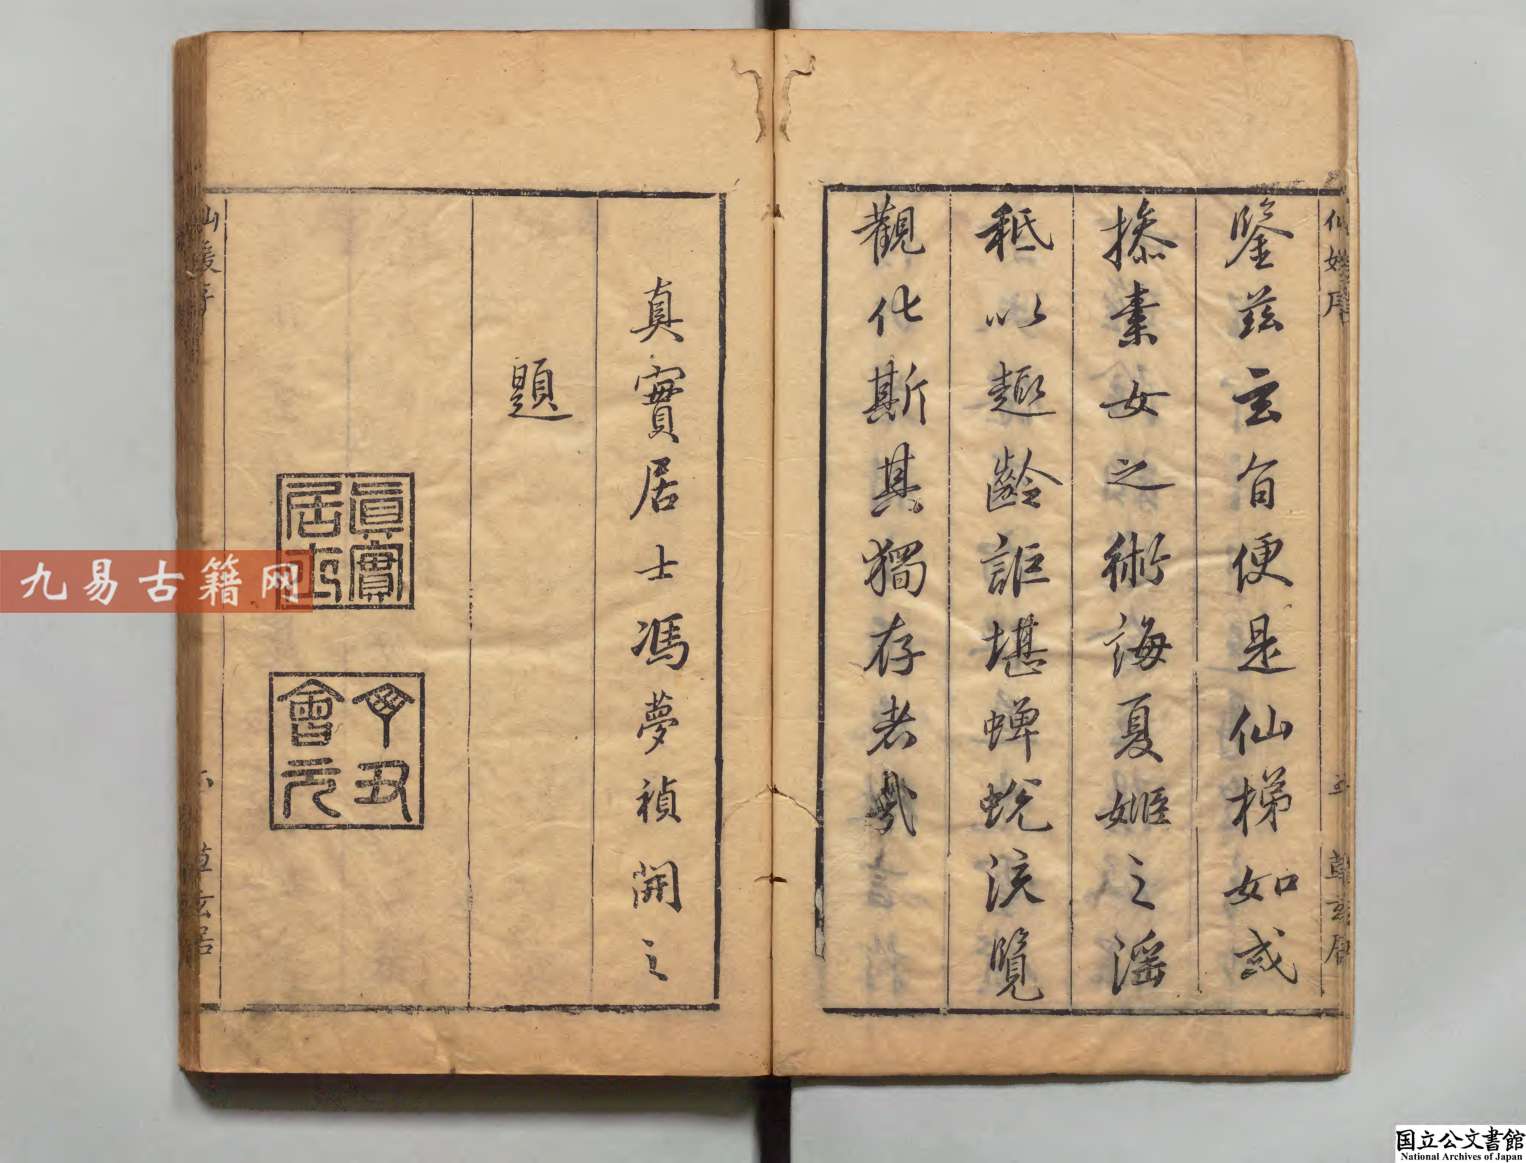 鑒茲玄旨便是仙梯如或
搽素女之術誨夏姬之淫
秪以趣齡詎堪蟬蛻流覽
觀化斯其獨存者哉
真實居士馮夢禎開之
題
眞實居士
丁丑會元
仙媛序
草玄居
九易古籍网
国立公文書館
National Archives of Japan